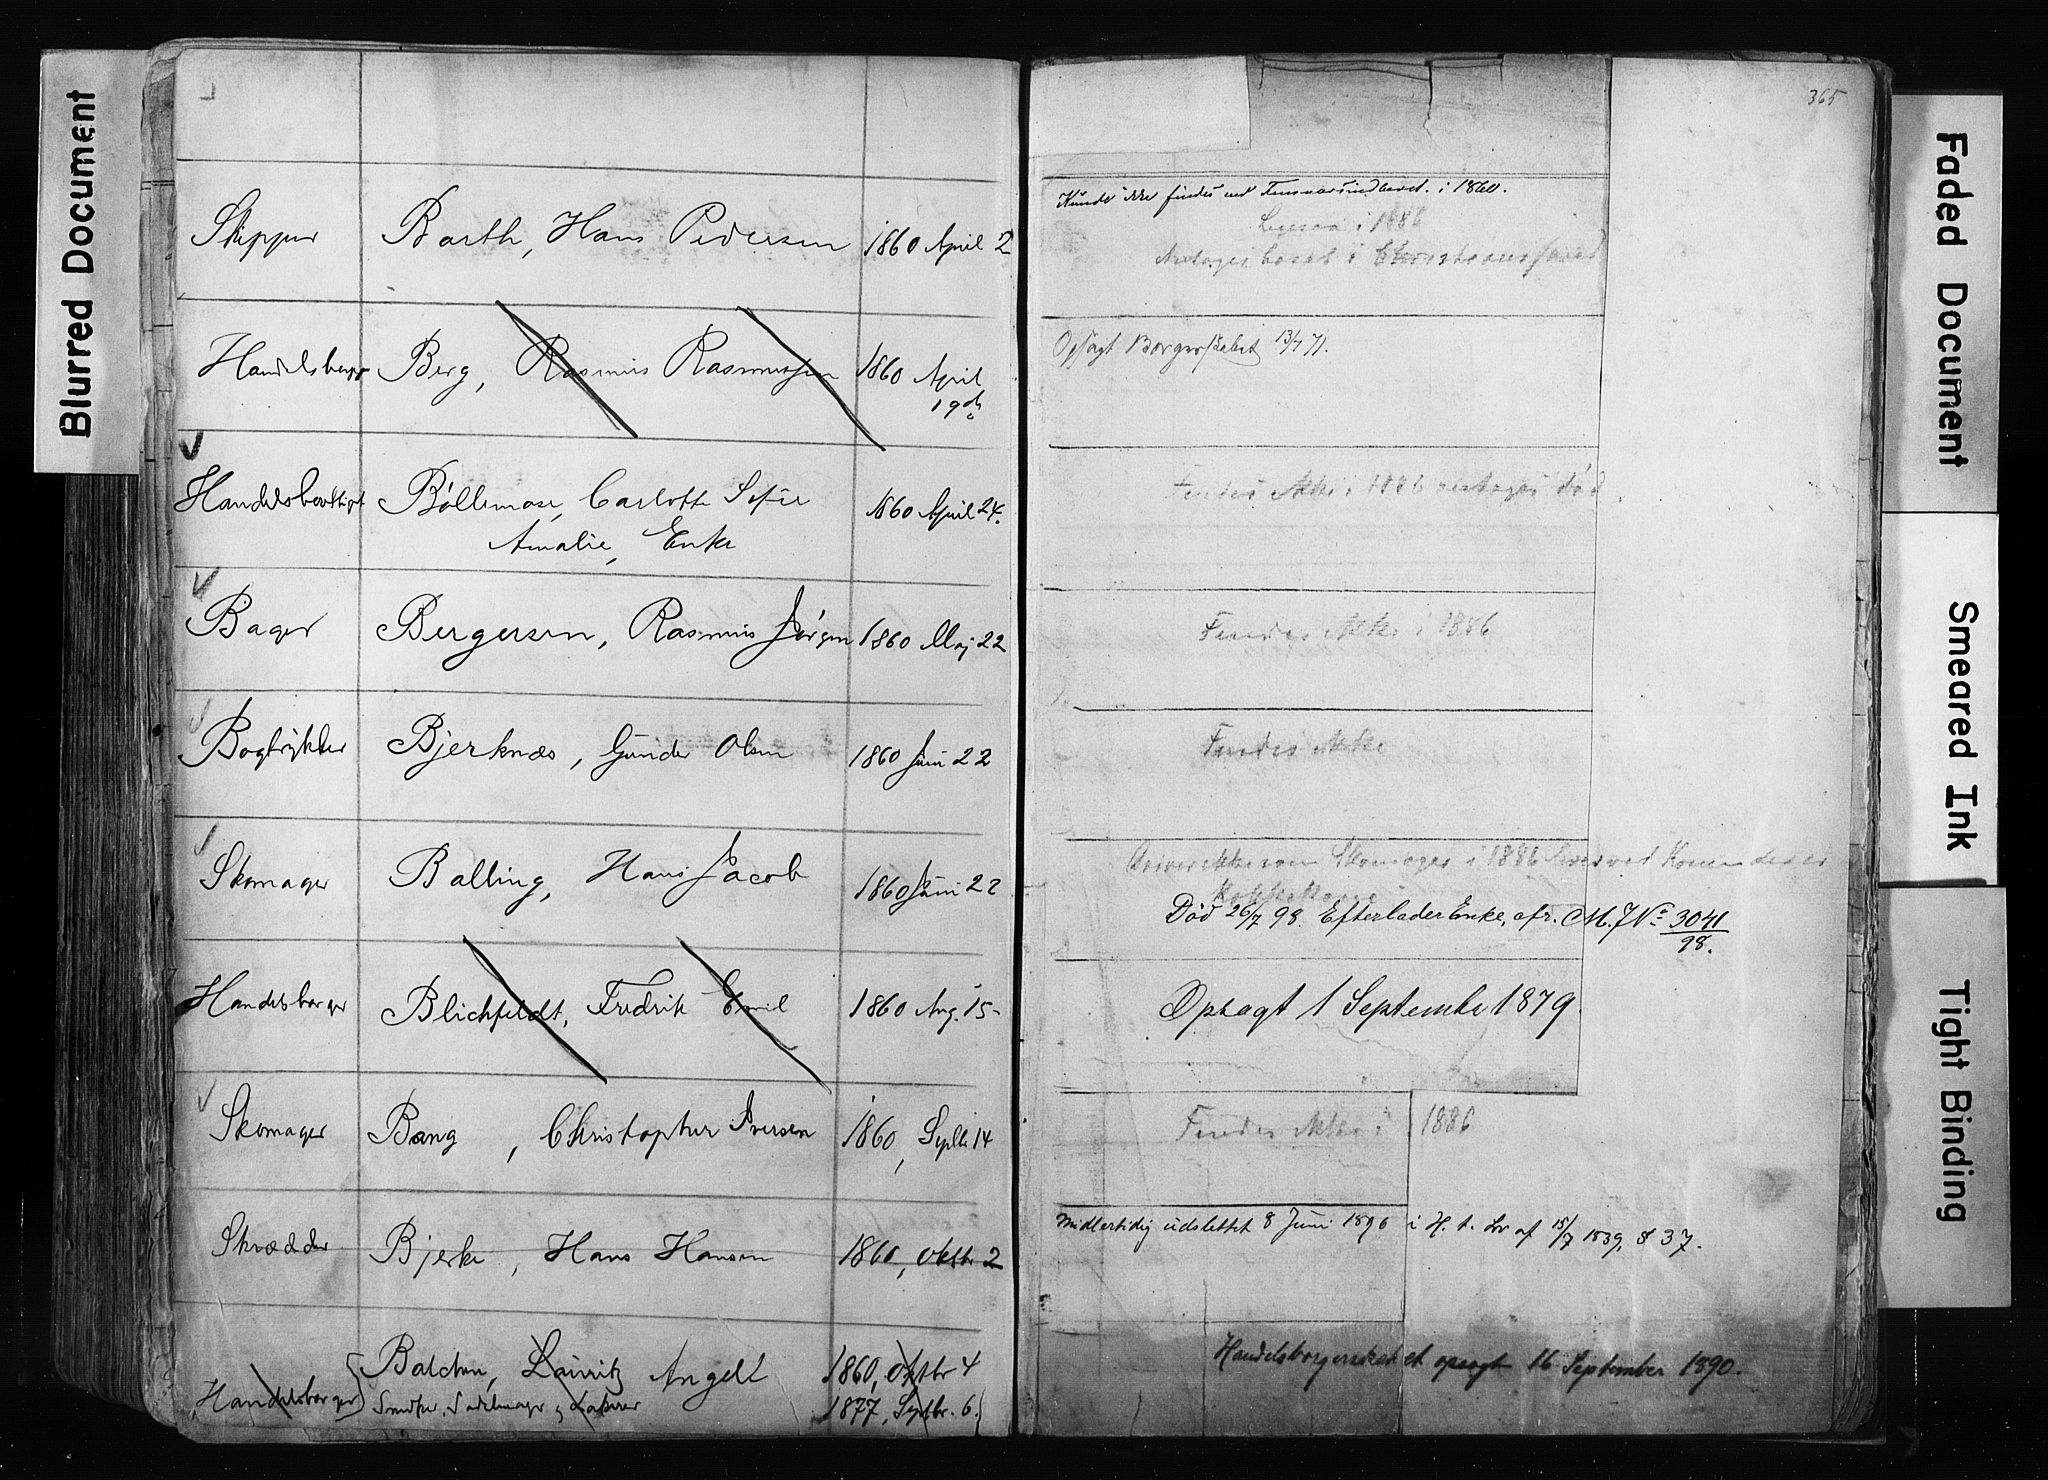 365
Skipper Barth, Hans Pedersen 1860 April 2
Kunde ikke findes ved i 1860.
i 1886
Antages bosat i Christianssand
Handelsborger Berg, Rasmus Rasmussen 1860 April
19de
Opsagt Borgerskabet 13/7 71.
Handelsberettiget Böllemose, Carlotte Sofie 1860 April 24.
Amalie, Enke
Findes ikke i 1886 antages død.
Bager Bergersen, Rasmus Jörgen 1860 Maj 22
Findes ikke i 1886
Bogtrykker Bjerknæs, Gunder Olsen 1860 Juni 22
Findes ikke
Skomager Balling, Hans Jacob 1860 Juni 22
Driver ikke som Skomager i 1886 ved
Död 26/7 98. Efterlader Enke, cfr. M. J No 3041/98.
Handelsborger Blichfeldt, Fredrik Emil 1860 Aug. 15
Opsagt 1 September 1879.
Skomager Bang, Christopher Iversen 1860, Septbr 14
Findes ikke i 1886
Skrædder Bjerke, Hans Hansen 1860, Oktbr 2
Midlertidig udslettet 8 Juni 1896 i H. t. Lov af 15/7 1839, § 37.
Balchen, Lauritz Angell 1860, Oktbr 4
Handelsborger Sadelmager 1877, Septbr. 6.
Handelsborgerskabet opsagt 16 September 1890.
Blurred Document
Faded Document
Smeared Ink
Tight Binding